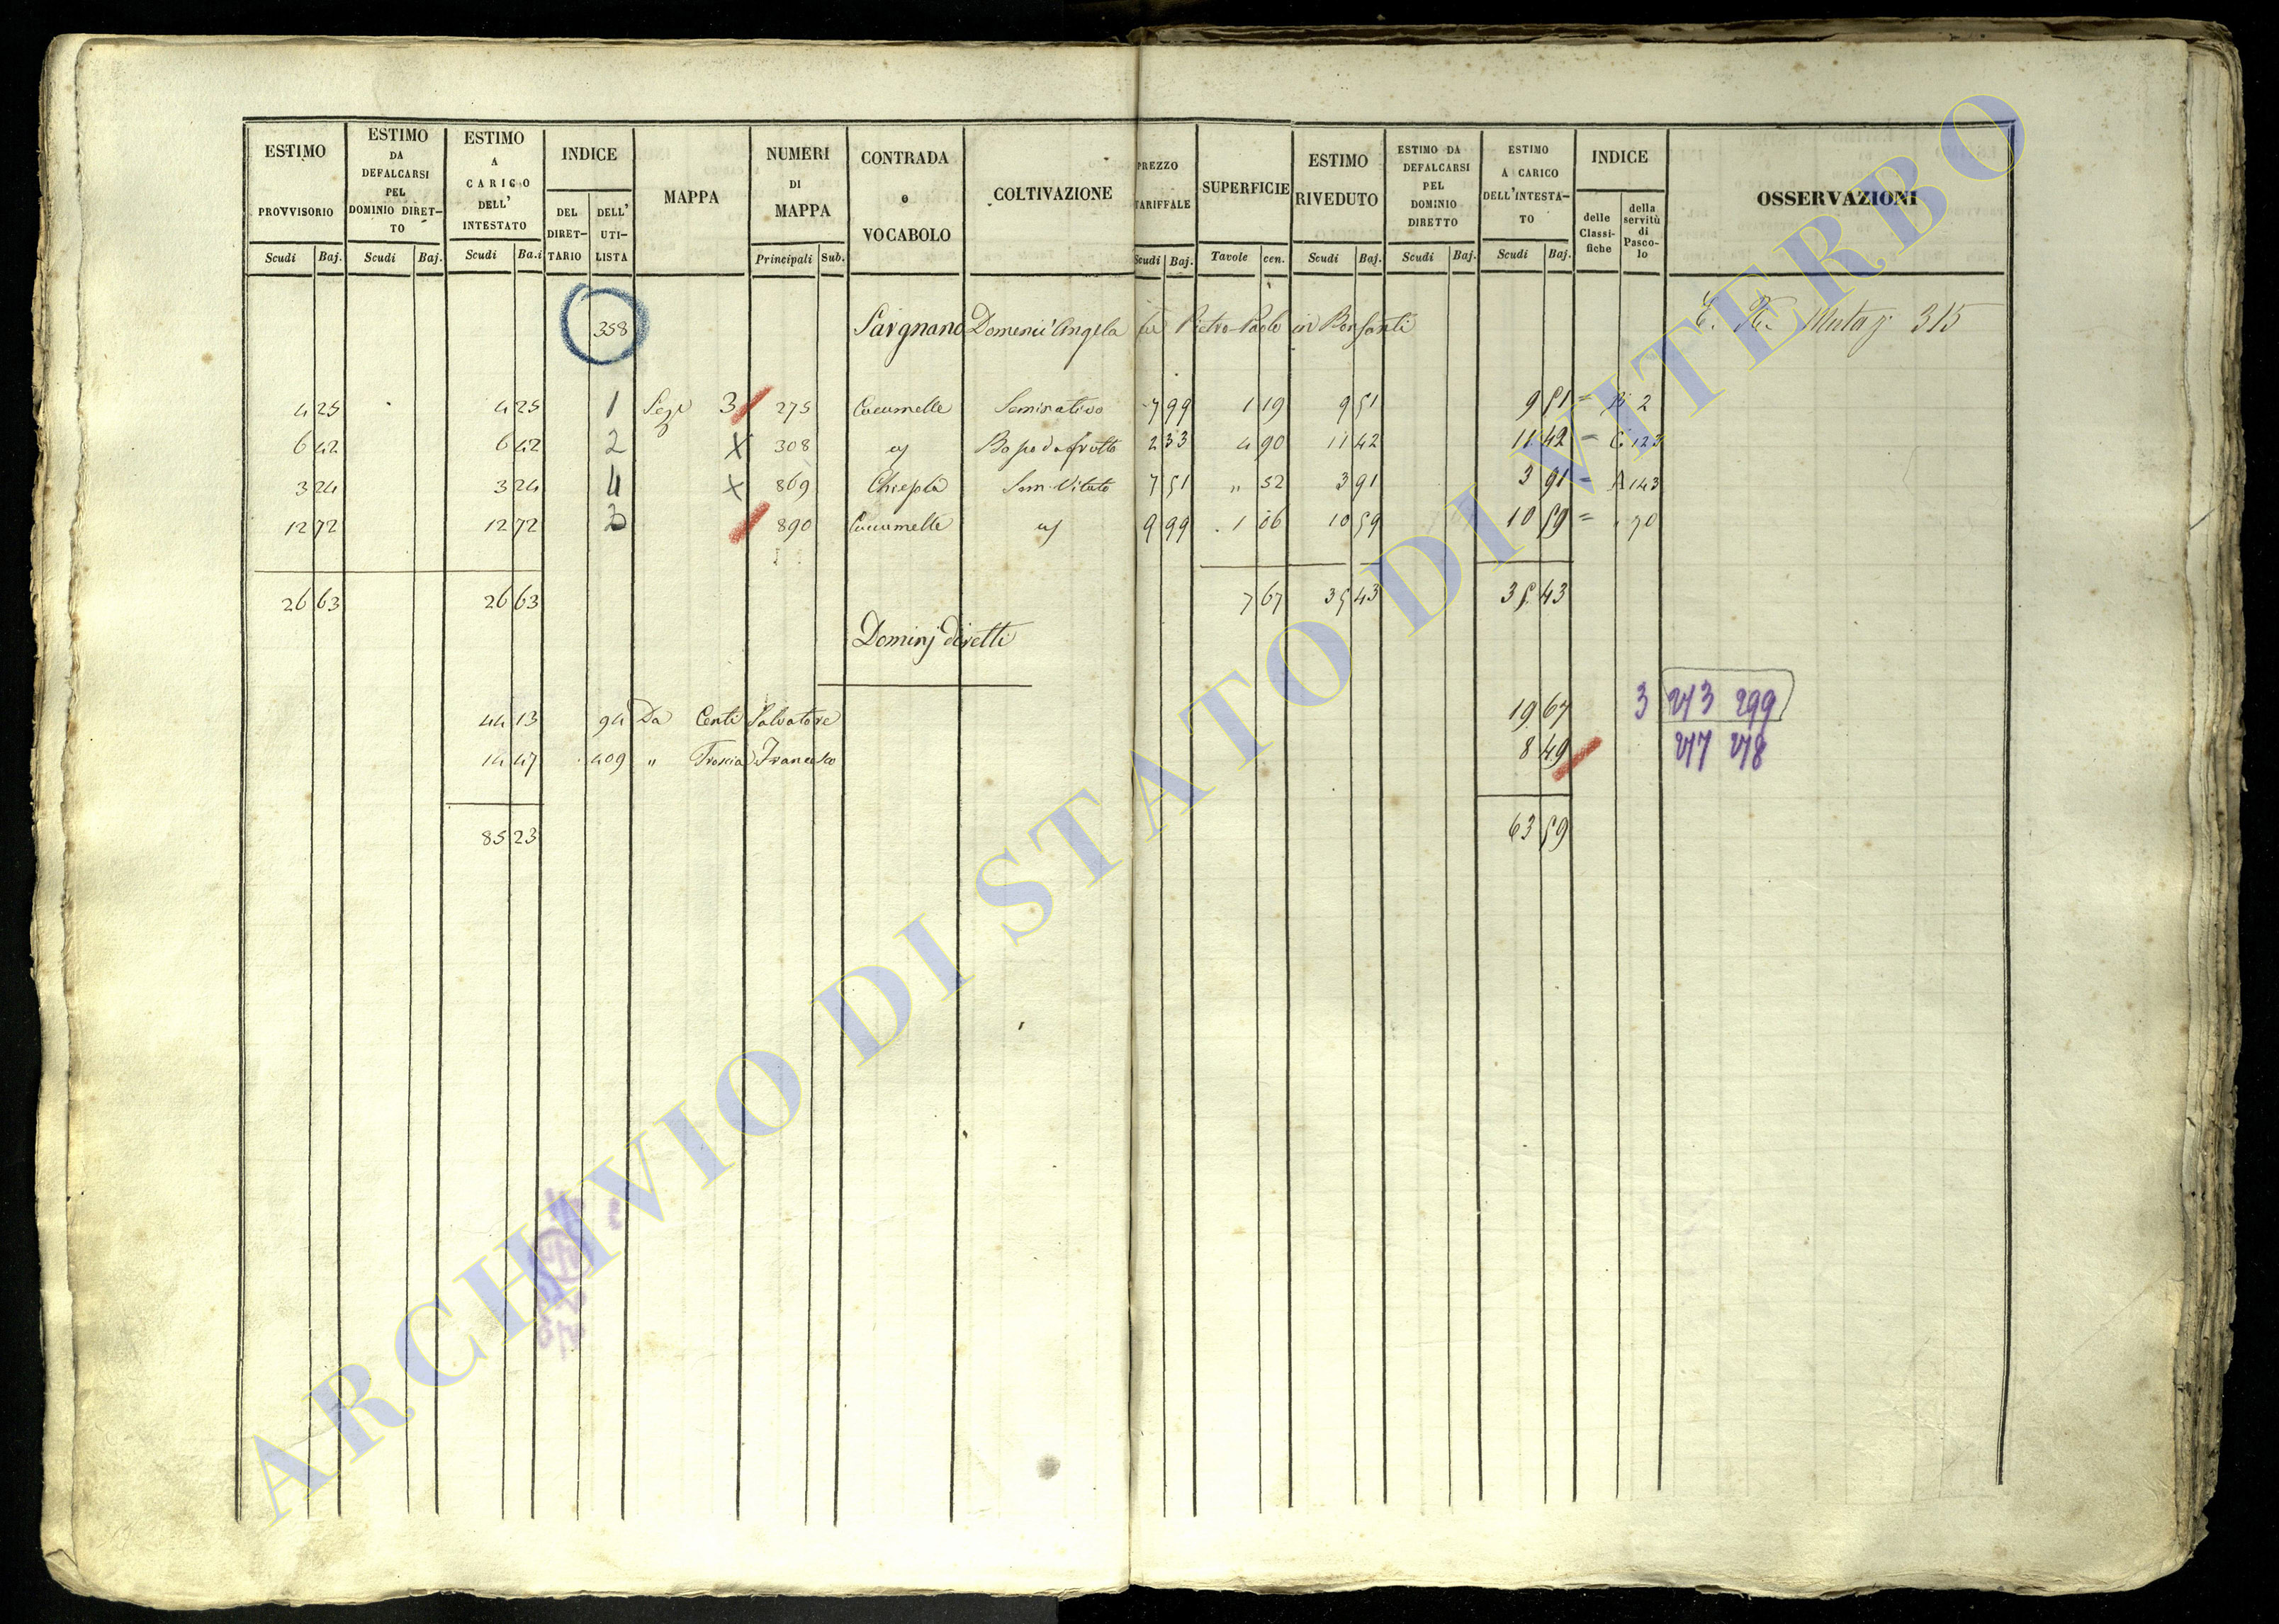 ESTIMO PROVVISORIO | ESTIMO DA DEFALCARSI PEL DOMINIO DIRET-TO | ESTIMO A CARICO DELL' INTESTATO | INDICE | MAPPA | NUMERI DI MAPPA | CONTRADA o VOCABOLO | COLTIVAZIONE | PREZZO TARIFFALE | SUPERFICIE | ESTIMO RIVEDUTO | ESTIMO DA DEFALCARSI PEL DOMINIO DIRETTO | ESTIMO A CARICO DELL'INTESTA-TO | INDICE | OSSERVAZIONI
DEL DIRET-TARIO | DELL' UTI-LISTA | delle Classi-fiche | della servitù di Pasco-lo
Scudi | Baj. | Scudi | Baj. | Scudi | Ba.i | Principali | Sub. | Scudi | Baj. | Tavole | cen. | Scudi | Baj. | Scudi | Baj. | Scudi | Baj.
358 Savgnano Domenic'Angela fu Pietro Paolo in Bonfanti Mutaz 315
4 25 4 25 1 Sezi 3 275 Cucumelle Seminativo 7 99 1 19 9 51 9 51 = 2
6 42 6 42 2 X 308 Bo po da frutto 2 33 4 90 11 42 11 42 = C 123
3 24 3 24 4 X 869 Sem. Vitato 7 51 " 52 3 91 3 91 = A 143
12 72 12 72 3 890 Cucumelle 9 99 1 06 10 59 10 59 = " 70
26 63 26 63 7 67 35 43 35 43
Dominj diretti
44 13 94 Da Centi Salvatore 19 67 3 273 299
14 47 409 " Troscia Francesco 8 49 277 278
85 23 63 59
ARCHIVIO DI STATO DI VITERBO